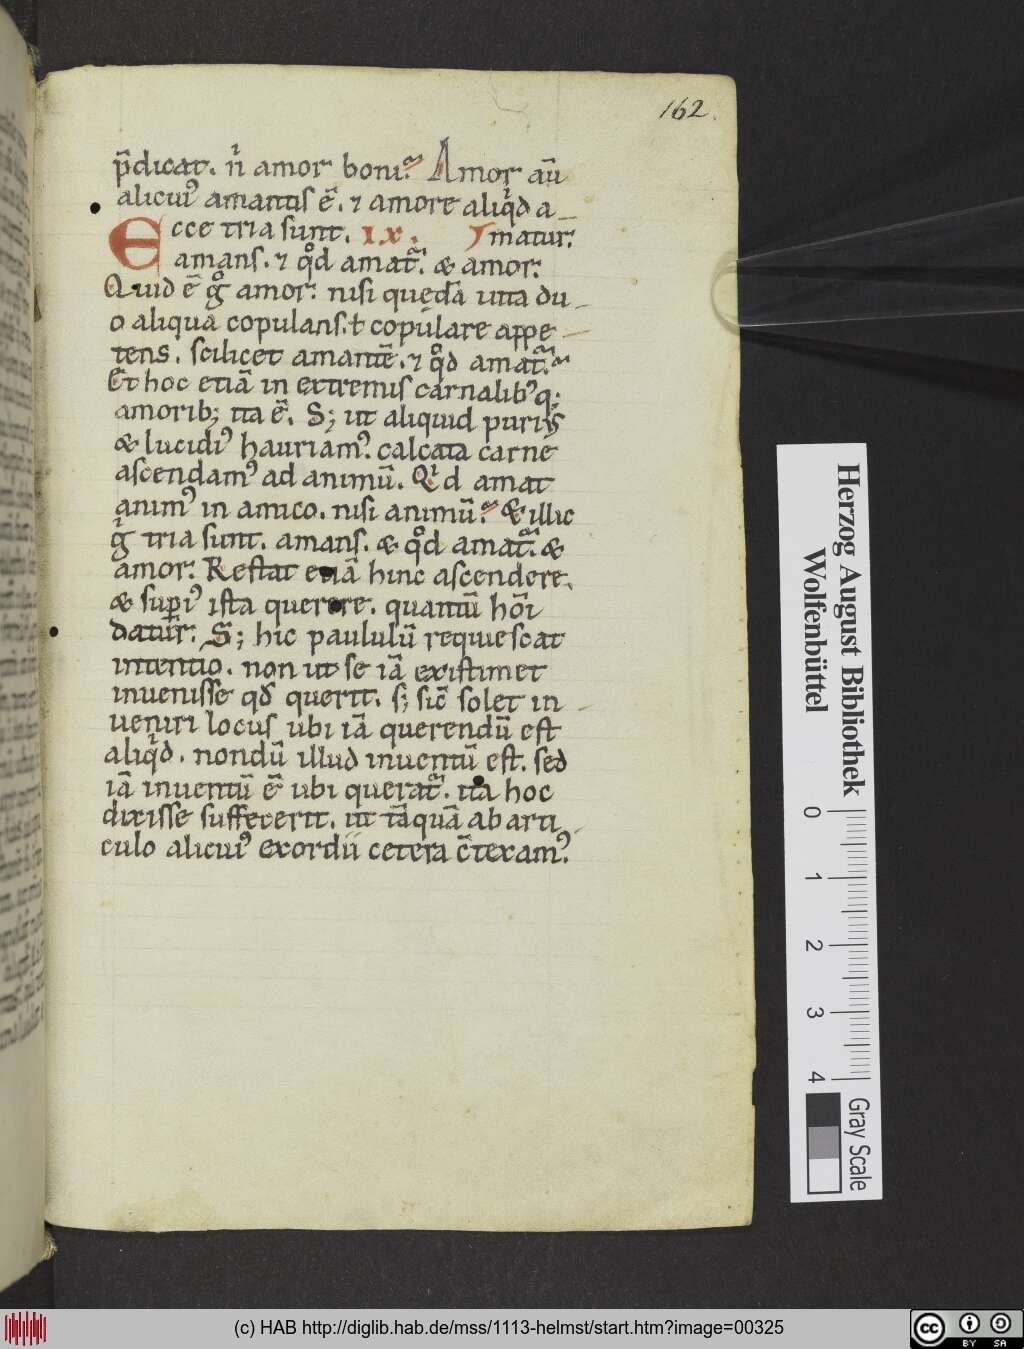 162.
p̄dicat. n̍ amor boni? Amor aū
alicui᾽ amantis ē. ⁊ amore aliq̍d a_
Ecce tria sunt. IX. matur:
amans. ⁊ qͦd amat᷑. & amor:
Quid ē gͦ amor: nisi quędā uita du_
o aliqua copulans. ł copulare appe_
tens. scilicet amantē. ⁊ qͦd amat᷑?
Et hoc etiā in extremis carnalib᾽q;
amorib; ita ē. S; ut aliquid puri᾽
& lucidi᾽ hauriam᾽. calcata carne
ascendam᾽ ad animū. Q̍d amat
anim᾽ in amico. nisi animū? & illic
g̍ tria sunt. amans. & qͦd amat᷑. &
amor: Restat etiā hinc ascendere.
& sup̱i᾽ ista querere. quantū hōi
datur᷑: S; hic paululū requiescat
intentio. non ut se iā existimet
inuenisse qd̄ querit. s; sic̄ solet in_
ueniri locus ubi iā querendū est
aliq̍d. nondū illud inuentū est. sed
iā inuentū ē ubi querat᷑. ita hoc
dixisse suffecerit. ut tāquā ab arti_
culo alicui᾽ exordii cetera c̄texam᾽.
Herzog August Bibliothek
Wolfenbüttel
0 1 2 3 4
Gray Scale
(c) HAB http://diglib.hab.de/mss/1113-helmst/start.htm?image=00325
cc BY SA